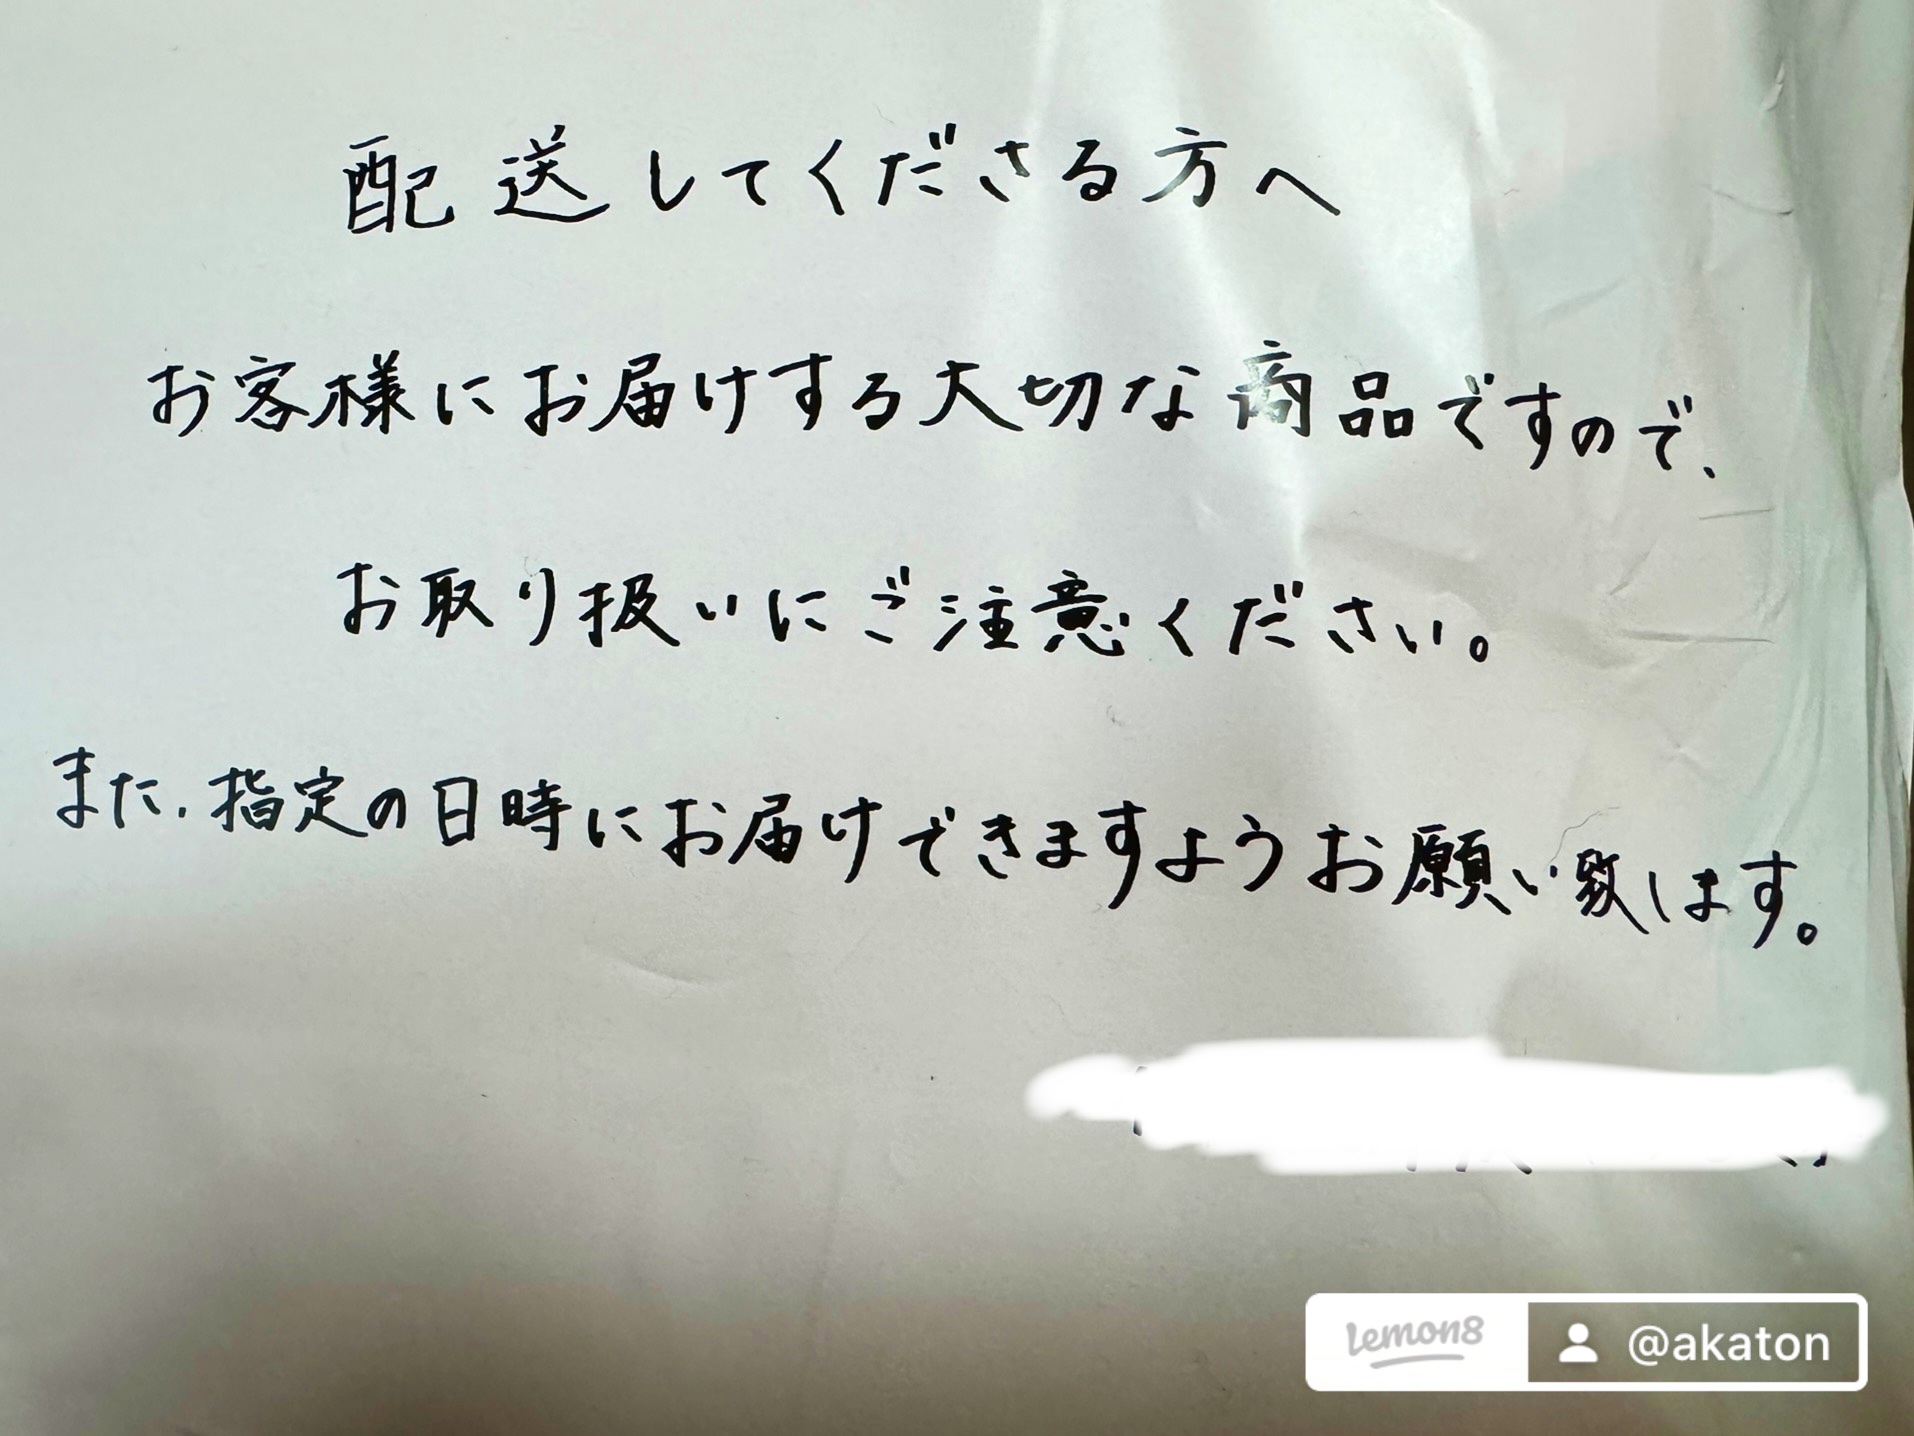 配送してくださる方へ
お客様にお届けする大切な商品ですので、
お取り扱いにご注意ください。
また、指定の日時にお届けできますようお願い致します。
Lemon8 @akaton